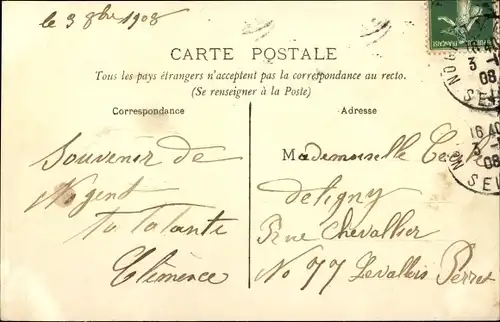 le 3 9bre 1908
CARTE POSTALE
Tous les pays étrangers n'acceptent pas la correspondance au recto.
(Se renseigner à la Poste)
Correspondance
Adresse
Souvenir de
Nogent
ta tatante
Clémence
Mademoiselle
deligny
Rue Chevallier
No 77 Levallois Perret
FRANÇAISE
3
08
16
3
08